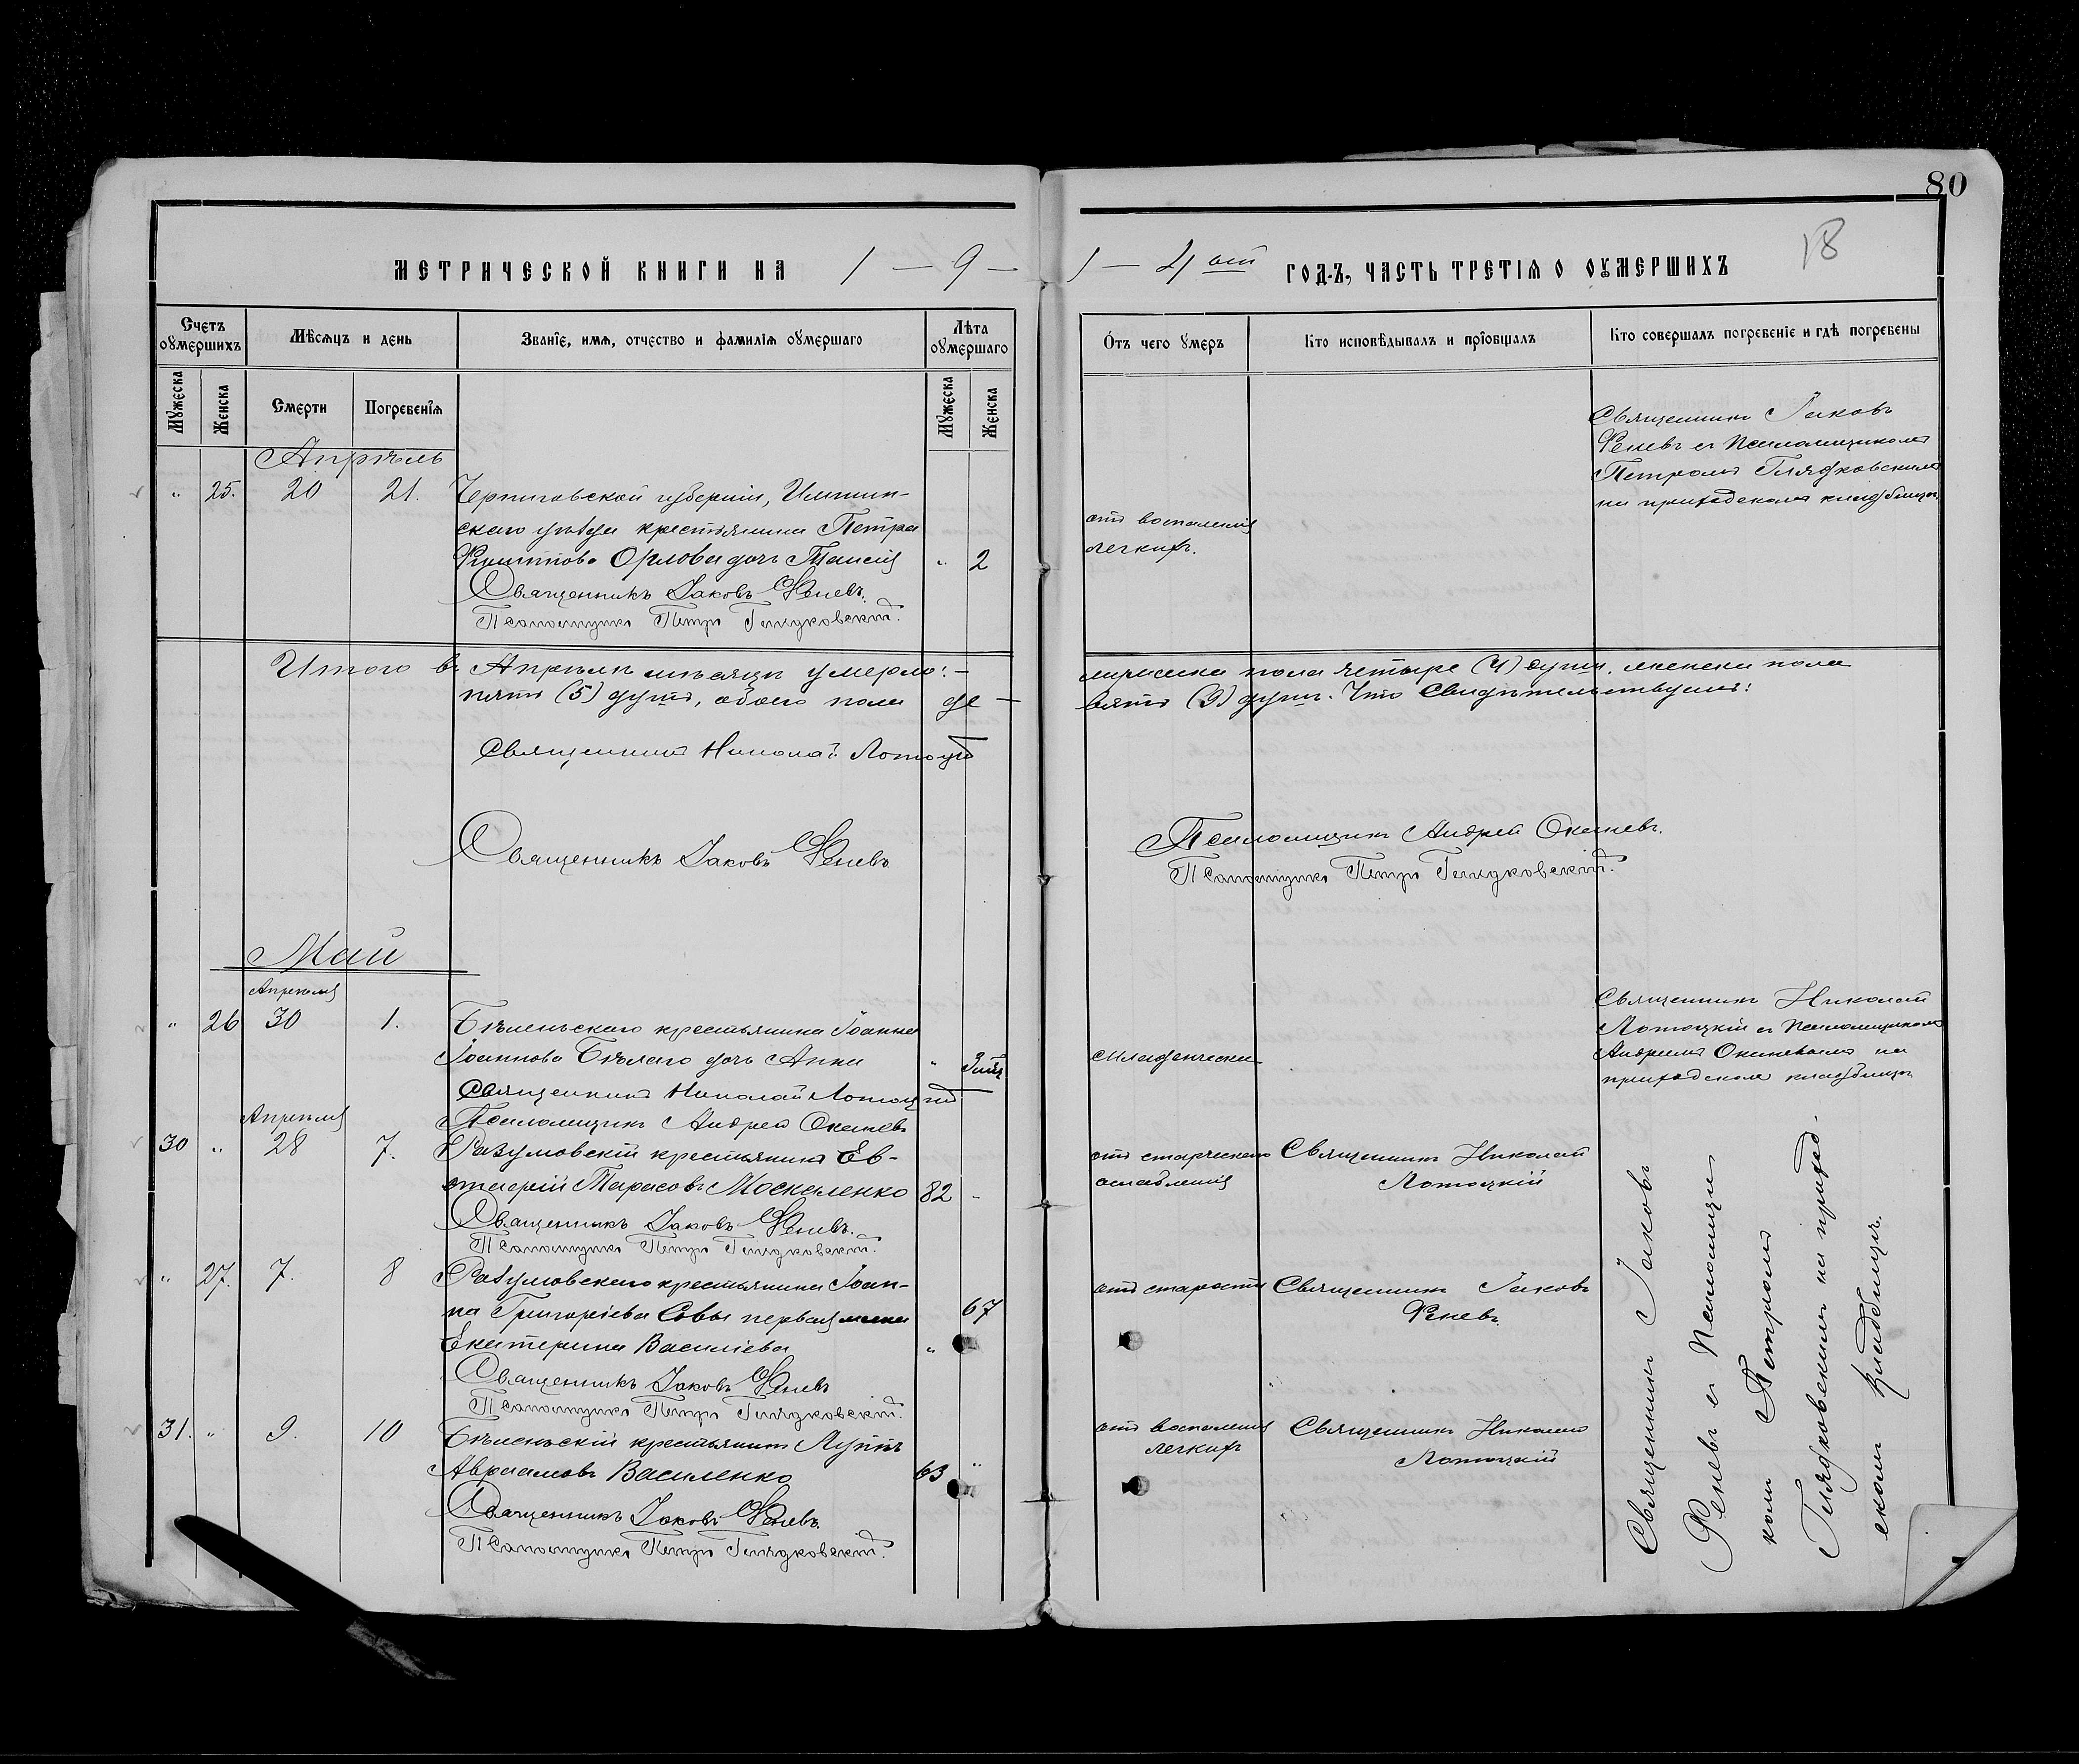 80
18
МЕТРИЧЕСКОЙ КНИГИ НА 1 — 9 —
1 — 4 ый ГОДЪ, ЧАСТЬ ТРЕТІѦ О ОУМЕРШИХЪ
Счетъ оумершихъ
Мѣсяцъ и день
Званїе, имя, отчество и фамилїя оумершаго
Лѣта оумершаго
Отъ чего умеръ
Кто исповѣдывалъ и прїобщалъ
Кто совершалъ погребенїе и гдѣ погребены
Мужеска
Женска
Смерти
Погребенїя
Мужеска
Женска
Апрѣль
" 25. 20 21.
Черниговской губерніи,
скаго уѣзда крестьянина Петра
Орлова дочь Таисія " 2
Священникъ Іаковъ Феневъ.
Псаломщикъ Петръ Глядковскій.
отъ воспаленія
легкихъ.
Священникъ Іаковъ
Феневъ съ псаломщикомъ
Петромъ Глядковскимъ
на приходскомъ кладбищѣ.
Итого въ Апрѣлѣ мѣсяцѣ умерло: —
мужеска пола четыре (4) души, женска пола
пять (5) душъ, обоего пола де —
вять (9) душъ. Что свидѣтельствуемъ:
Священникъ Николай Лотоцкій
Священникъ Іаковъ Феневъ
Псаломщикъ Андрей Окиневъ.
Псаломщикъ Петръ Глядковскій.
Май
Апрѣля
" 26 30 1.
Бѣленьскаго крестьянина Іоанна
Іоаннова Бѣлаго дочь Анна "
Священникъ Николай Лотоцкій
Псаломщикъ Андрей Окиневъ
младенческ.
Священникъ Николай
Лотоцкій съ псаломщикомъ
Андреемъ Окиневымъ на
приходскомъ кладбищѣ
Апрѣля
30 " 28 7.
Разумовскій крестьянинъ Ев-
стафій Тарасовъ Москаленко 82 "
Священникъ Іаковъ Феневъ.
Псаломщикъ Петръ Глядковскій.
отъ старческаго
ослабленія
Священникъ Николай
Лотоцкій
" 27. 7. 8
Разумовскаго крестьянина Іоан-
на Григоріева Совы первая жена 67
Екатерина Василіева "
Священникъ Іаковъ Феневъ
Псаломщикъ Петръ Глядковскій.
отъ старости
Священникъ Іаковъ
Феневъ.
31. " 9. 10
Бѣленьскій крестьянинъ Луппъ
Авраамовъ Василенко 63 "
Священникъ Іаковъ Феневъ.
Псаломщикъ Петръ Глядковскій.
отъ воспаленія
легкихъ
Священникъ Николай
Лотоцкій
Священникъ Іаковъ
Феневъ съ псаломщи
комъ Петромъ
Глядковскимъ на приход-
скомъ кладбищѣ.